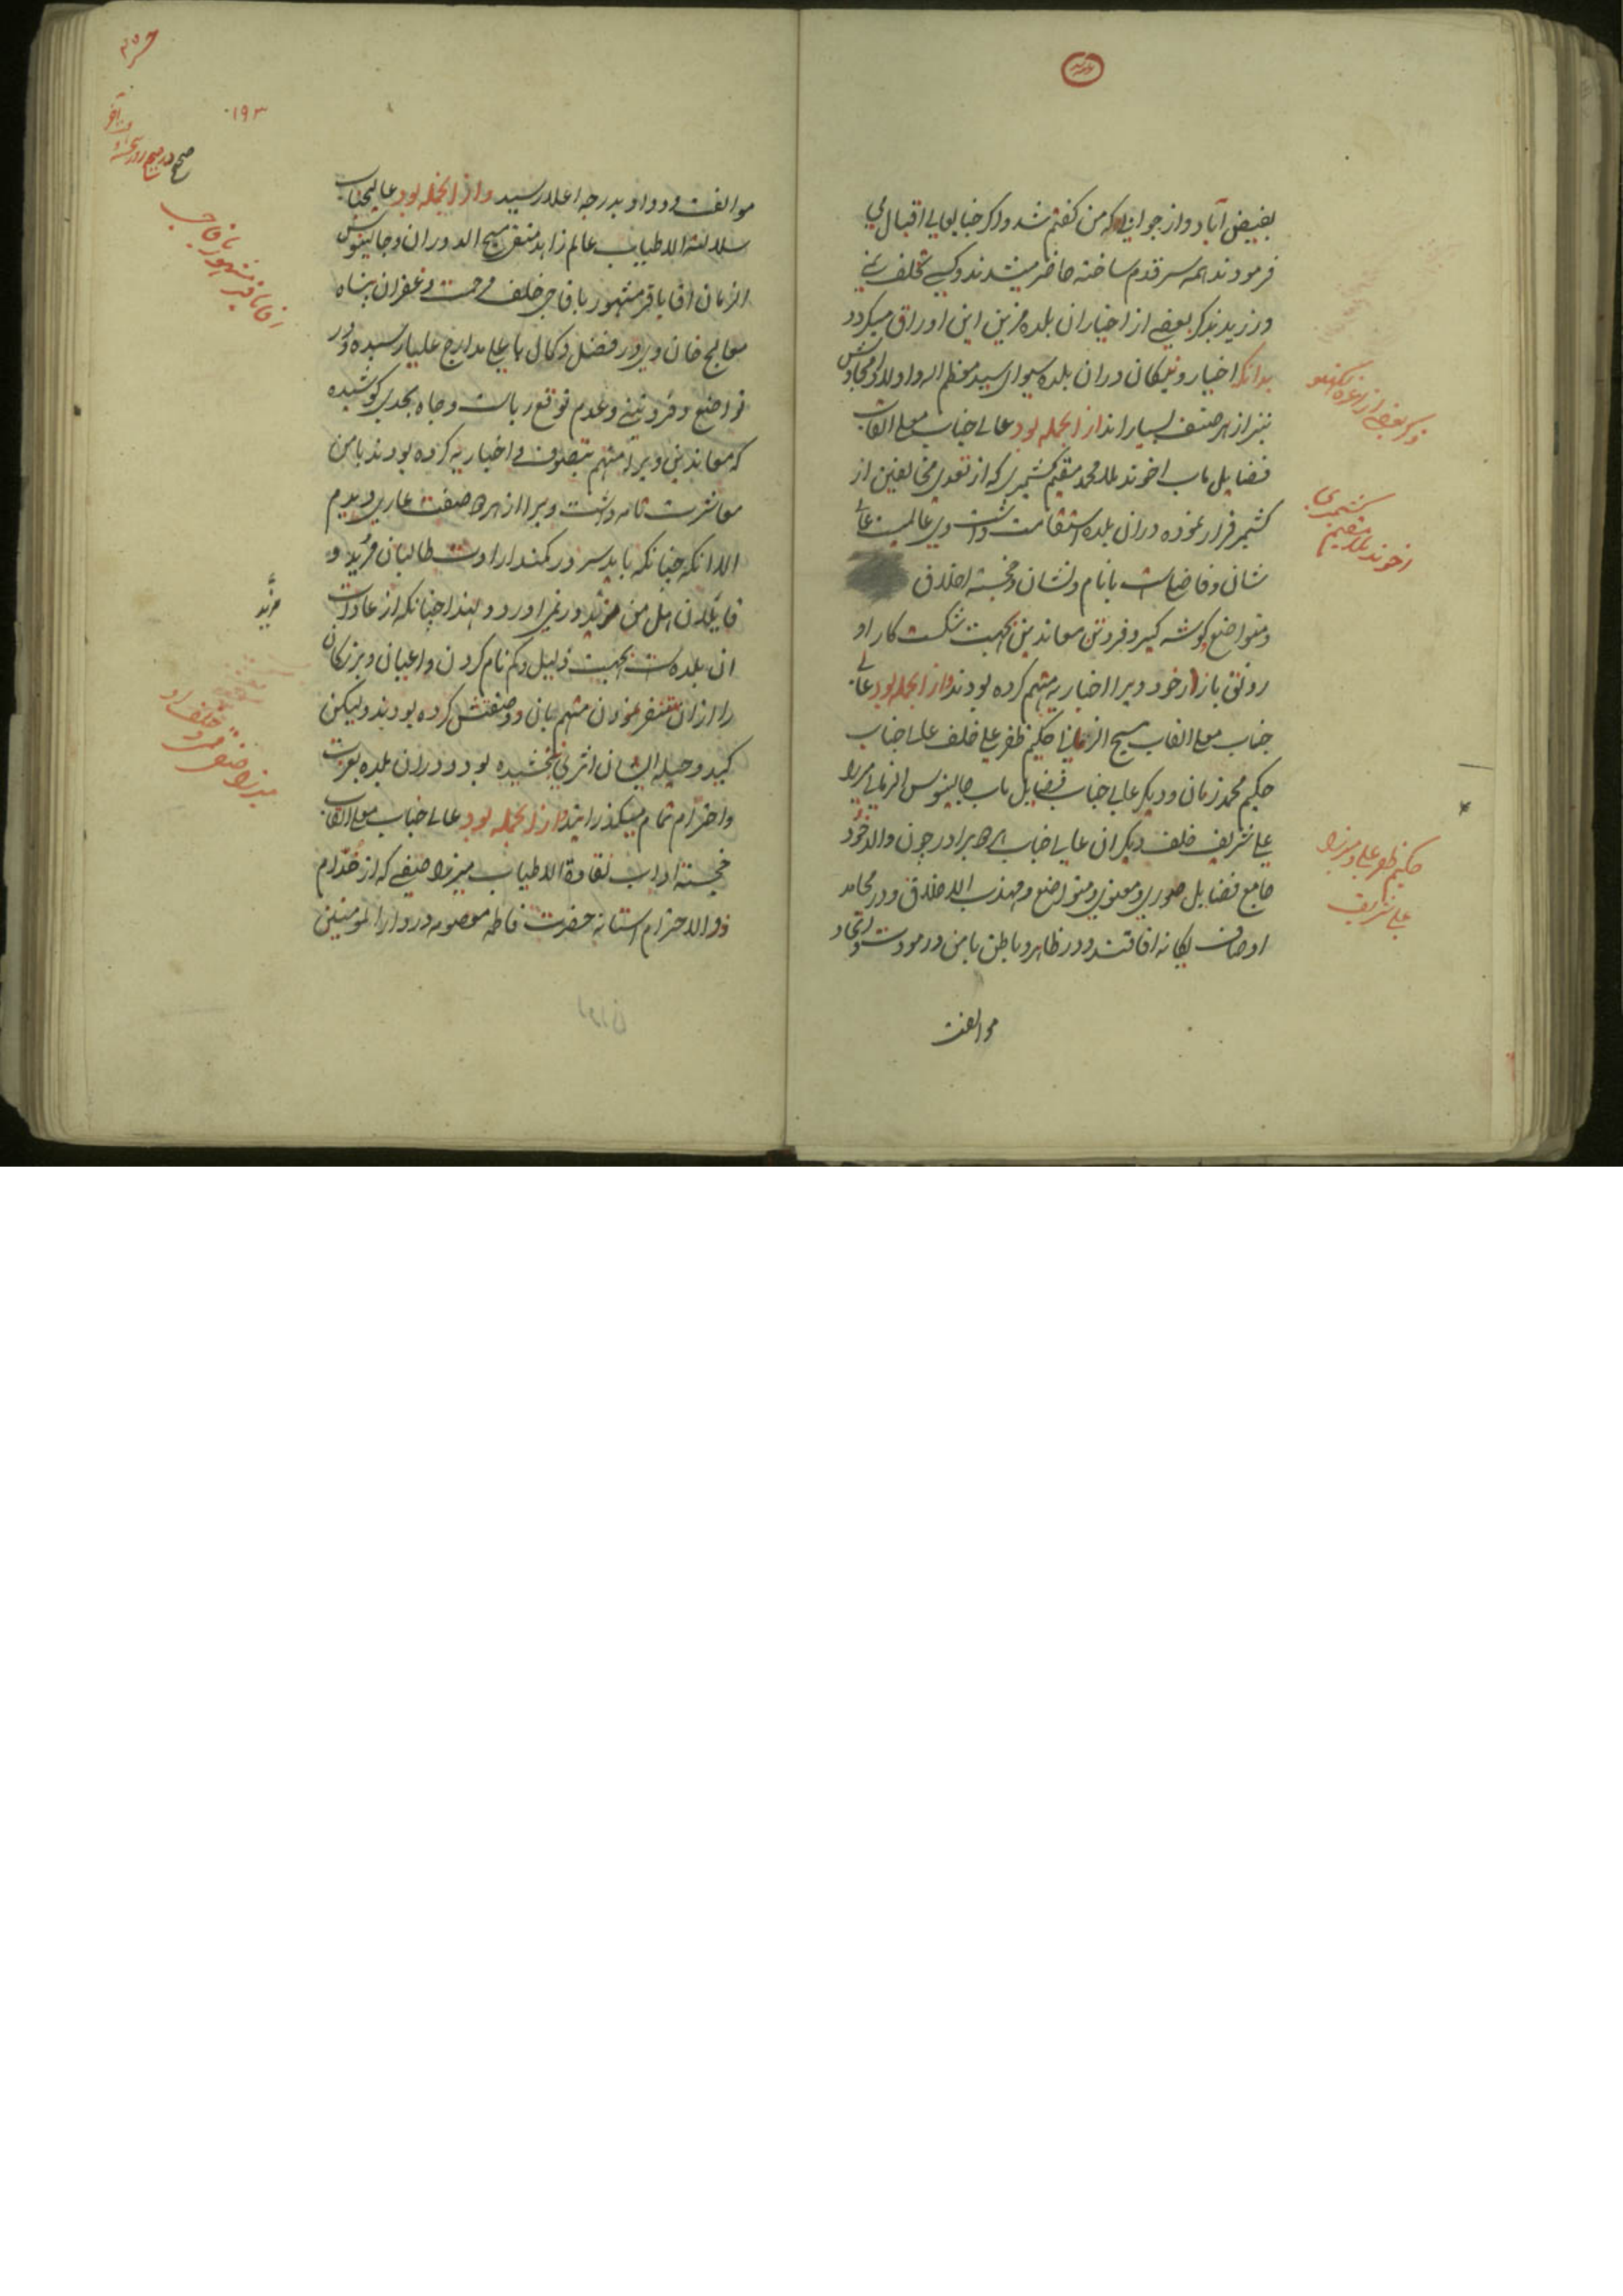 بفیض آباد و از جوانان که من کفتم شد و اکر جنابعالی اقبال می
فرمودند همه سر قدم ساخته حاضر میشدند و کسی تخلف نمی
ورزید بذکر بعضی از اخیار ان بلده مزین این اوراق میکردد
بدانکه اخیار و نیکان دران بلده سوای سید معظم الیه و اولاد امجادش
نیز از هر صنف بسیاراند از انجمله بود عالی جناب معلی القاب
فضایل ماب اخوند ملا محمد مقیم کشمیری که از تعدی مخالفین از
کشمیر فرار نموده دران بلده استقامت داشت وی عالمیست عالی
شان و فاضلیست با نام و نشان و خجسته اخلاق
و متواضع کوشه کیر و فروتن معاندین بجهت شکست کار او
رونق بازار خود ویرا اخباریه متهم کرده بودند و از انجمله بود عالی
جناب معلی القاب مسیح الزمانی حکیم ظفر علی خلف عالی جناب
حکیم محمد زمان و دیکر عالی جناب فضایل ماب جالینوس الزمانی میرزا
علی شریف خلف دیکر ان عالی جناب این هر برادر چون والد خود
جامع فضایل صوری و معنوی و متواضع و مهذب الاخلاق و در محامد
اوصاف یکانه افاقند و در ظاهر و باطن با من در مودت و اتحاد
موالفت
ذکر بعضی از اعزه لکهنو
اخوند ملا مقیم کشمیری
حکیم ظفر علی و میرزا
علی شریف
۱۹۳
موالفت و وداد بدرجه اعلا رسید و از انجمله بود عالیجناب
سلالة الاطیاب عالم زاهد متقی مسیح الدوران و جالینوس
الزمان اقا باقر مشهور باقاجی خلف مرحمت و غفران پناه
معالج خان وی در فضل و کمال باعلی مدارج علیا رسیده و در
تواضع و فروتنی و عدم توقع ریاست و جاه بحدی کوشیده
که معاندین ویرا متهم بتصوف و اخباریه کرده بودند با من
معاشرت تامه داشت ویرا از هر دو صفت عاری دیدم
الا انکه چنانکه باید سر در کمند ارادت طالبان مرید و
قایلان هل من مزید در نمی اورد و لهذا چنانکه از عادات
ان بلده است بجهت ذلیل و کم نام کردن و اعیان و بزرکان
را ازان متنفر نمودن متهم بان دو صفتش کرده بودند و لیکن
کید و حیله ایشان اثری نبخشیده بود و دران بلده بعزت
و احترام تمام میکذرانید و از انجمله بود عالی جناب معلی القاب
خجسته اداب نقاوة الاطیاب میرزا صیفی که از خدام
ذوالاحترام استانه حضرت فاطمه معصومه در دار المومنین
اقا باقر مشهور باقاجی
مزید